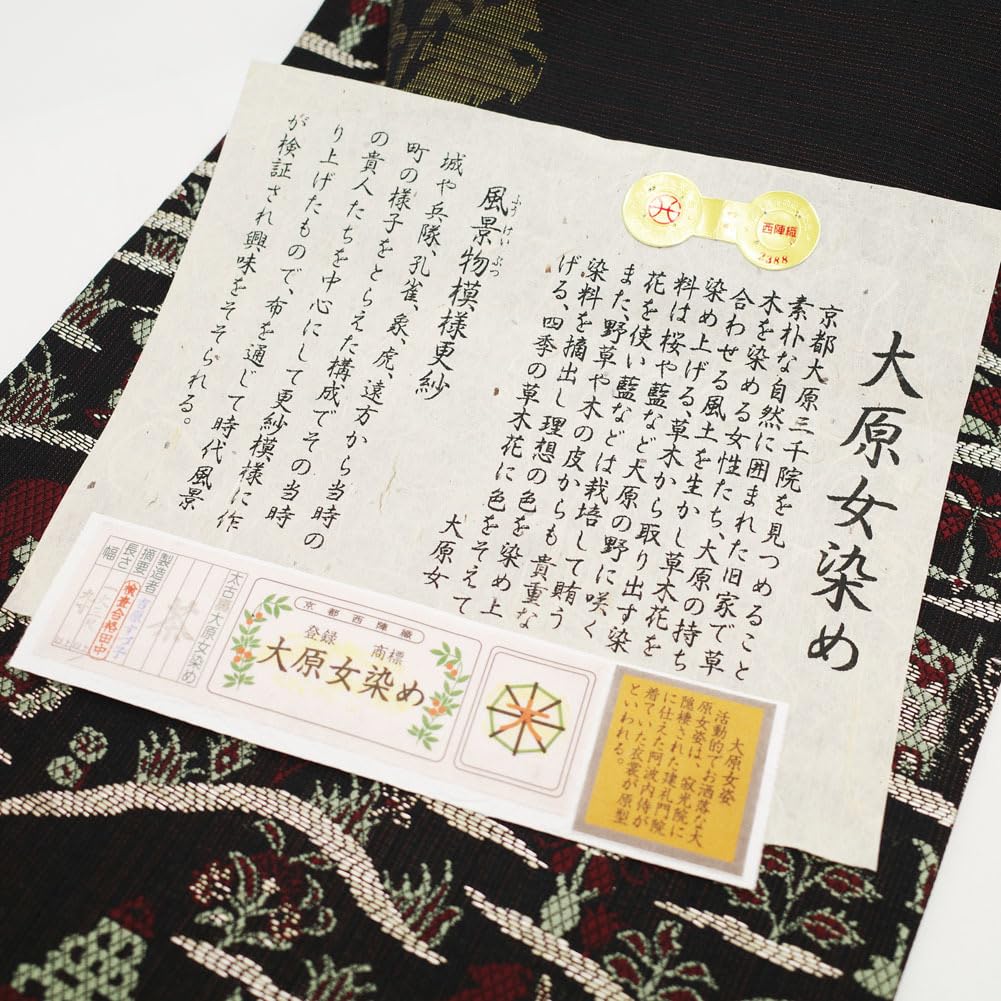 大原女染め
京都大原三千院を見つめること
素朴な自然に囲まれた旧家で草
木を染める女性たち、大原の持ち
合わせる風土を生かし草木花を
染め上げる、草木から取り出す染
料は桜や藍など大原の野に咲く
花を使い藍などは栽培して賄う
また、野草や木の皮からも貴重な
染料を摘出し理想の色を染め上
げる、四季の草木花に色をそえて
大原女
風景物模様更紗
ふうけいぶつ
城や兵隊、孔雀、象、虎、遠方から当時の
町の様子をとらえた構成でその当時
の貴人たちを中心にして更紗模様に作
り上げたもので、布を通じて時代風景
が検証され興味をそそられる。
西陣織
2388
大原女姿
活動的でお洒落な大
原女姿は、寂光院に
隠棲された建礼門院
に仕えた阿波内侍が
着ていた衣裳が原型
といわれる。
京都西陣織
登録 商標
大原女染め
大原女染め
製造者
摘要
長さ
幅
検査合格田中